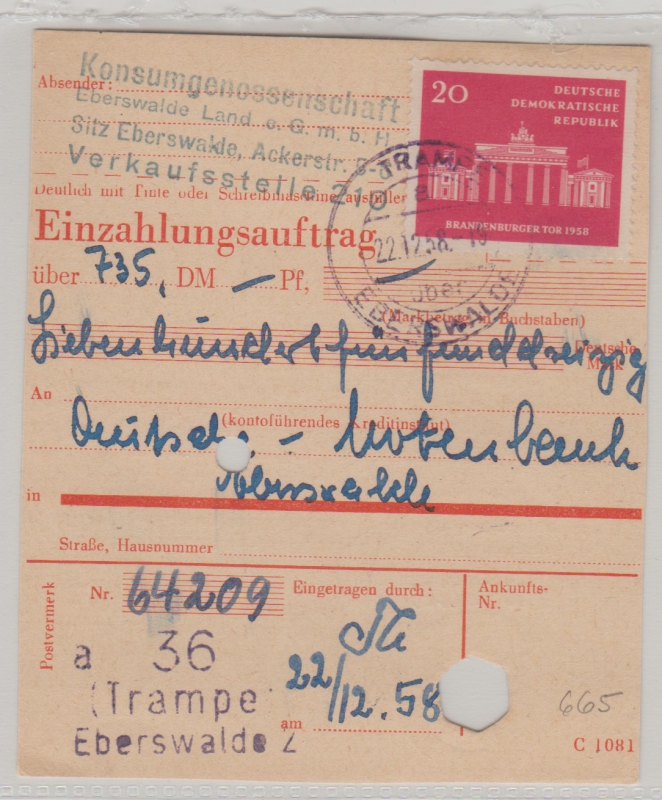 Absender:
Konsumgenossenschaft
Eberswalde Land e. G. m. b. H.
Sitz Eberswalde, Ackerstr.
Verkaufsstelle 218
20
DEUTSCHE
DEMOKRATISCHE
REPUBLIK
BRANDENBURGER TOR 1958
TRAMPE
22.12.58
über
EBERSWALDE
Deutlich mit Tinte oder Schreibmaschine ausfüllen
Einzahlungsauftrag
über 735, DM — Pf,
(Markbetrag in Buchstaben)
Siebenhundertfünfunddreizig Deutsche Mark
An
(kontoführendes Kreditinstitut)
Deutsche - Notenbank
in Eberswalde
Straße, Hausnummer
Postvermerk
Nr. 64209
Eingetragen durch:
Ankunfts-
Nr.
a 36
(Trampe
Eberswalde 2
am 22/12.58
665
C 1081